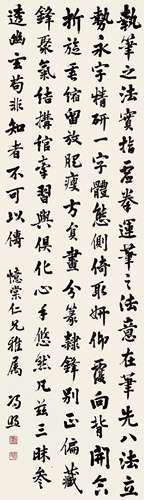 執筆之法實指虛拳運筆之法意在筆先八法立
勢永字精研一字體態側倚取妍仰覆向背開合
折旋垂縮留放肥瘦方負畫今篆隸鋒別正偏藏
鋒聚氣結搆習與俱化心手悠然凡茲三昧參
透幽玄苟非知者不可以傳
憶棠仁兄雅屬 馮煦